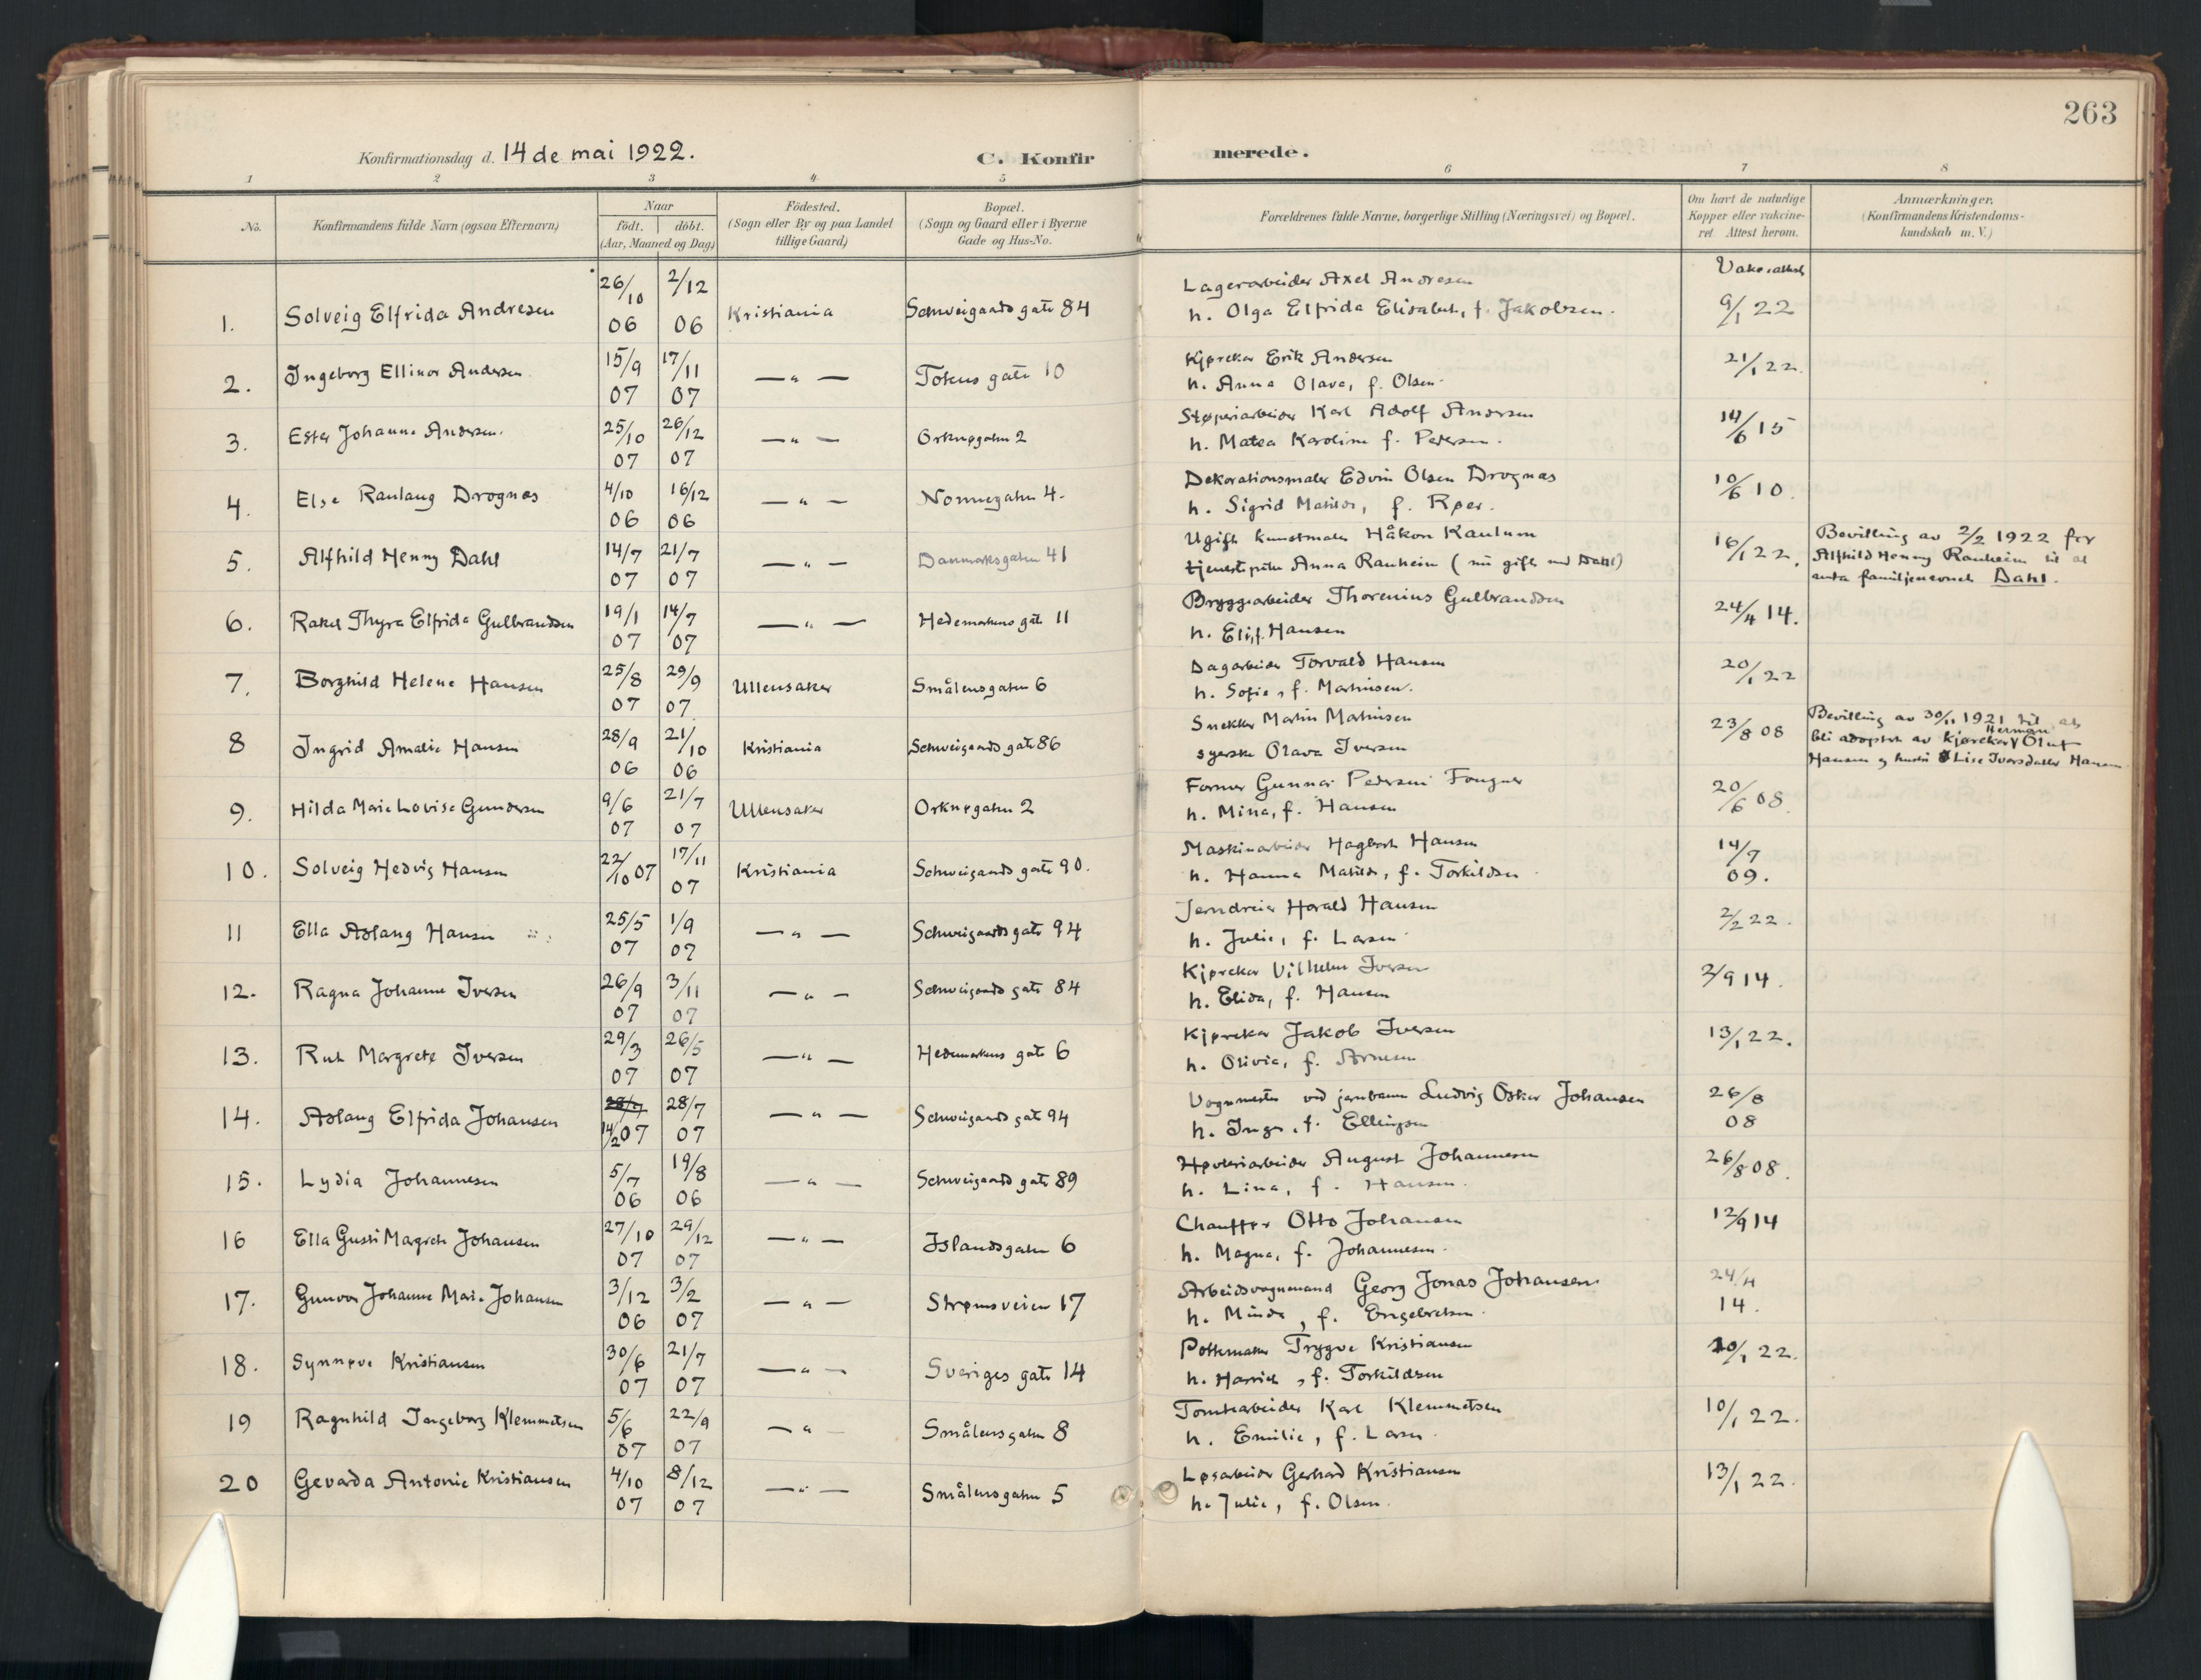 263
Konfirmationsdag d. 14 de mai 1922. C. Konfirmerede.
1 2 3 4 5 6 7 8
No. Konfirmandens fulde Navn (ogsaa Efternavn) Naar födt. döbt. (Aar, Maaned og Dag) Födested. (Sogn eller By og paa Landet tillige Gaard) Bopæl. (Sogn og Gaard eller i Byerne Gade og Hus-No. Forældrenes fulde Navne, borgerlige Stilling (Næringsvei) og Bopæl. Om havt de naturlige Kopper eller vakcineret. Attest herom. Anmærkninger, (Konfirmandens Kristendomskundskab m. V.)
1. Solveig Elfrida Andresen 26/10 06 2/12 06 Kristiania Schweigaards gate 84 Lagerarbeider Axel Andresen
h. Olga Elfrida Elisabeth, f. Jakobsen. 9/1 22
2. Ingeborg Ellinor Andersen 15/9 07 17/11 07 — " — Totens gate 10 Kjørekar Erik Andersen
h. Anna Olava, f. Olsen. 21/1 22.
3. Ester Johanne Andersen. 25/10 07 26/12 07 — " — Orknøgaten 2 Støperiarbeider Karl Adolf Andersen
h. Matea Karoline f. Pedersen. 14/6 15
4. Else Ranlaug Drognes 4/10 06 16/12 06 — " — Nonnegaten 4. Dekorationsmaler Edvin Olsen Drognæs
h. Sigrid Matilde, f. Røer. 10/6 10.
5. Alfhild Henny Dahl 14/7 07 21/7 07 — " — Danmarksgaten 41 Ugift kunstmaler Håkon Kaulum
tjenestepike Anna Ranheim (nu gift med Dahl) 16/1 22. Bevilling av 2/2 1922 for
Alfhild Henny Ranheim til at
anta familjenavnet Dahl.
6. Rakel Thyra Elfrida Gulbrandsen 19/1 07 14/7 07 — " — Hedemarkens gate 11 Bryggearbeider Thorenius Gulbrandsen
h. Eli, f. Hansen 24/4 14.
7. Borghild Helene Hansen 25/8 07 29/9 07 Ullensaker Smålensgaten 6 Dagarbeider Torvald Hansen
h. Sofie, f. Martinsen. 20/1 22
8 Ingrid Amalie Hansen 28/9 06 21/10 06 Kristiania Schweigaards gate 86 Snekker Martin Martinsen
syerske Olava Iversen 23/8 08 Bevilling av 30/11 1921 til at
bli adoptert av kjørekar Herman Oluf
Hansen og hustru Lise Iversdatter Hansen
9. Hilda Marie Lovise Gundersen 9/6 07 21/7 07 Ullensaker Orknøgaten 2 Former Gunnar Pedersen Fougner
h. Mina, f. Hansen 20/6 08.
10. Solveig Hedvig Hansen 22/10 07 17/11 07 Kristiania Schweigaards gate 90. Maskinarbeider Hagbart Hansen
h. Hanna Matilde, f. Torkildsen 14/7 09.
11 Ella Aslaug Hansen 25/5 07 1/9 07 — " — Schweigaards gate 94 Jerndreier Harald Hansen
h. Julie, f. Larsen 2/2 22.
12. Ragna Johanne Iversen 26/9 07 3/11 07 — " — Schweigaards gate 84 Kjørekar Vilhelm Iversen
h. Elida, f. Hansen 2/9 14.
13. Rut Margrete Iversen 29/3 07 26/5 07 — " — Hedemarkens gate 6 Kjørekar Jakob Iversen
h. Olivia, f. Arnesen 13/1 22.
14. Aslaug Elfrida Johansen 28/7 14/2 07 28/7 07 — " — Schweigaards gate 94 Vognmester ved jernbanen Ludvig Oskar Johansen
h. Inga, f. Ellingsen 26/8 08
15. Lydia Johannesen 5/7 06 19/8 06 — " — Schweigaards gate 89 Høvleriarbeider August Johannesen
h. Lina, f. Hansen. 26/8 08.
16 Ella Gusti Margrete Johansen 27/10 07 29/12 07 — " — Islandsgaten 6 Chauffør Otto Johansen
h. Magna, f. Johannesen. 12/9 14
17. Gunvor Johanne Marie Johansen 3/12 06 3/2 07 — " — Strømsveien 17 Arbeidsvognmand Georg Jonas Johansen
h. Minda, f. Engebretsen. 24/4 14.
18. Synnøve Kristiansen 30/6 07 21/7 07 — " — Sveriges gate 14 Pottemaker Trygve Kristiansen
h. Harriet, f. Torkildsen 20/1 22.
19 Ragnhild Ingeborg Klemmetsen 5/6 07 22/9 07 — " — Smålensgaten 8 Tomtearbeider Karl Klemmetsen
h. Emilie, f. Larsen. 10/1 22.
20 Gevarda Antonie Kristiansen 4/10 07 8/12 07 — " — Smålensgaten 5 Løsarbeider Gerhard Kristiansen
h. Julie, f. Olsen. 13/1 22.